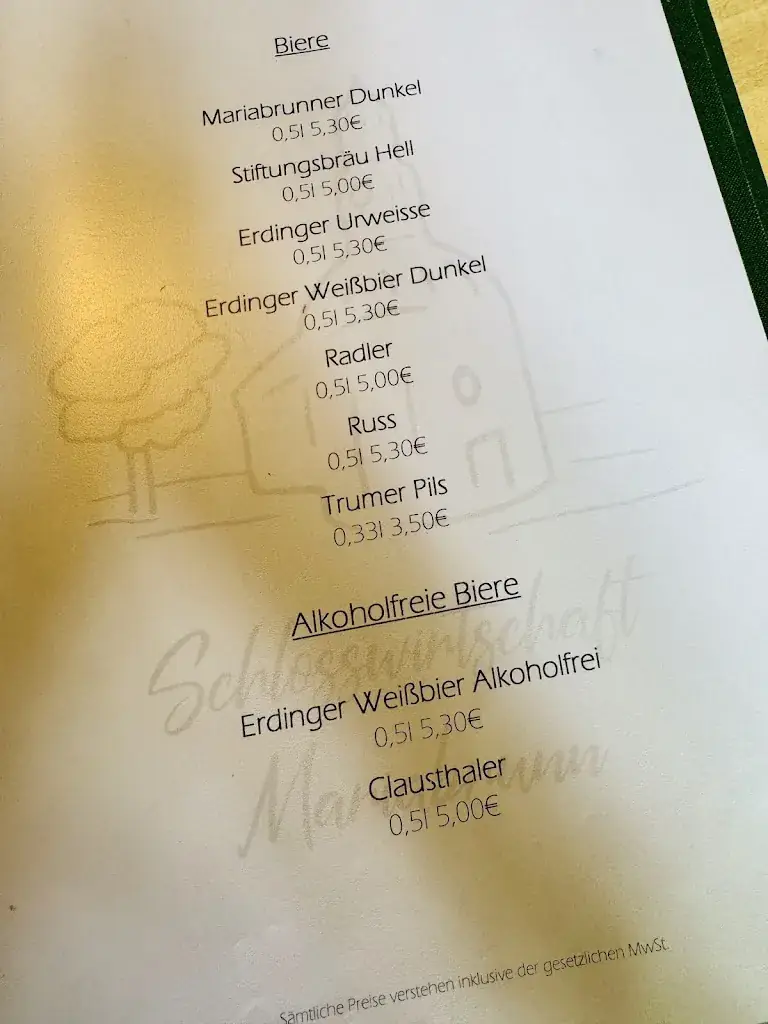 Biere
Mariabrunner Dunkel
0,5l 5,30€
Stiftungsbräu Hell
0,5l 5,00€
Erdinger Urweisse
0,5l 5,30€
Erdinger Weißbier Dunkel
0,5l 5,30€
Radler
0,5l 5,00€
Russ
0,5l 5,30€
Trumer Pils
0,33l 3,50€
Alkoholfreie Biere
Schlosswirtschaft
Erdinger Weißbier Alkoholfrei
0,5l 5,30€
Mariabrunn
Clausthaler
0,5l 5,00€
Sämtliche Preise verstehen inklusive der gesetzlichen MwSt.